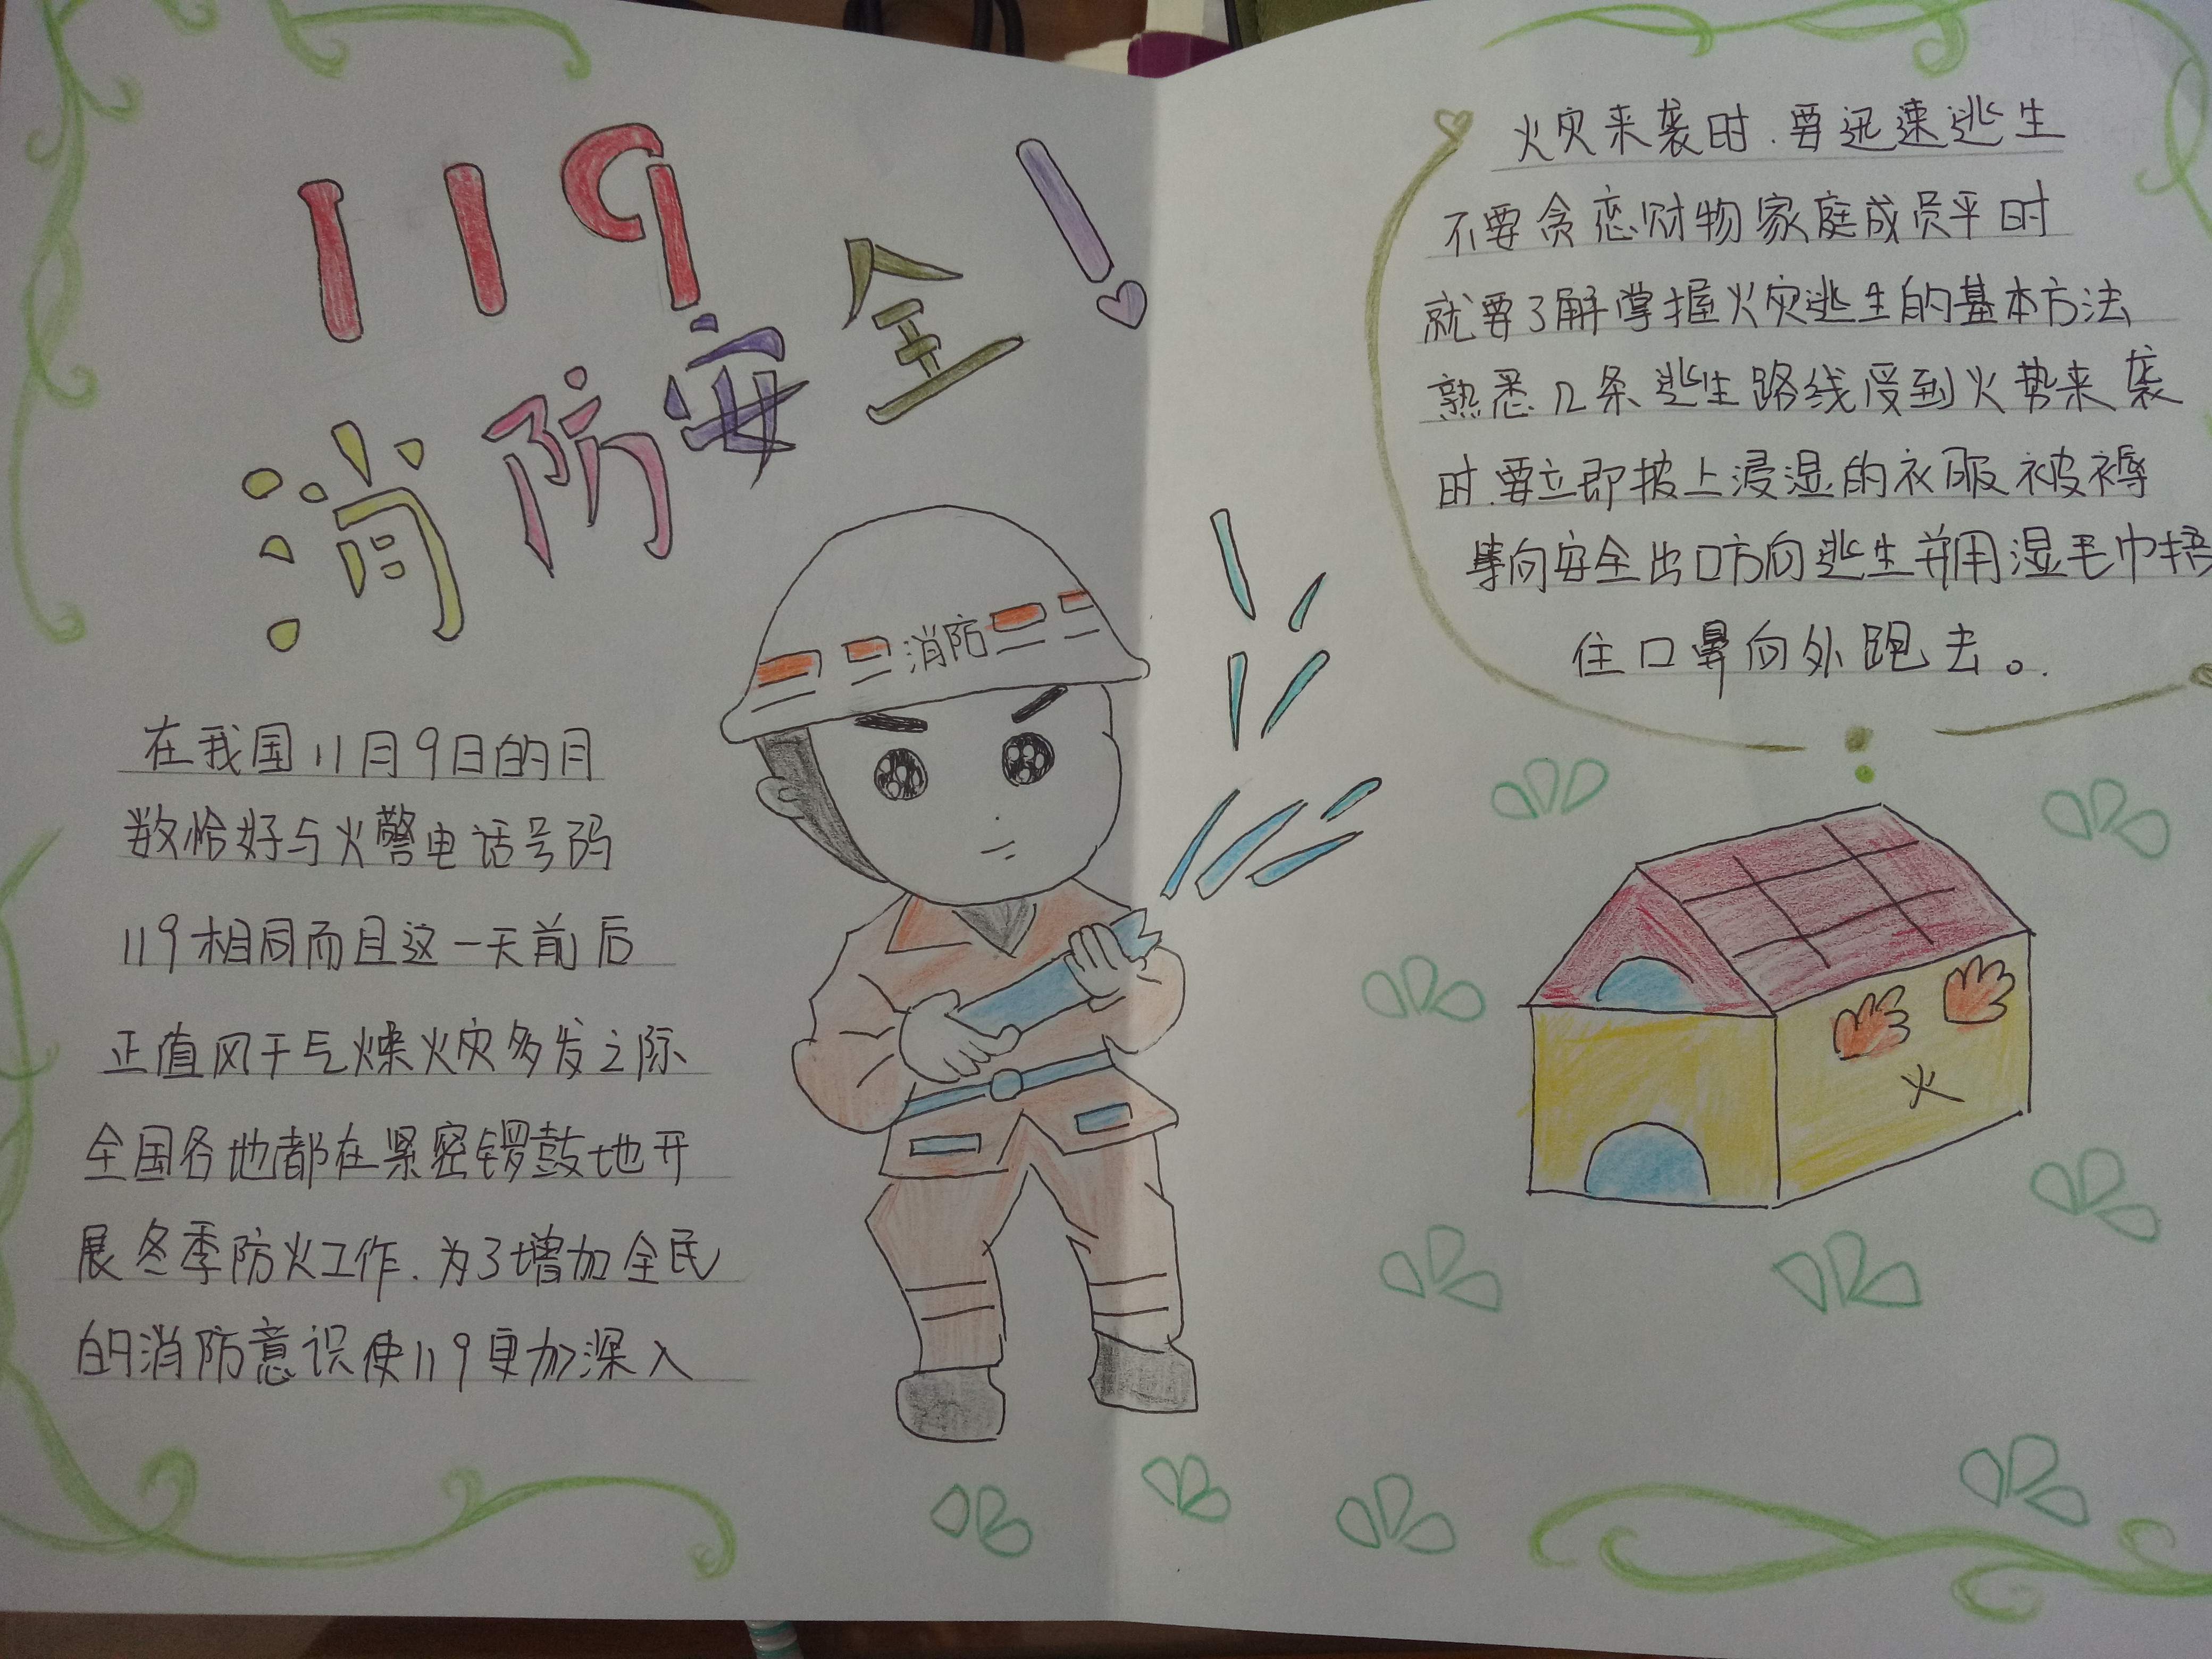 119
消防安全!
消防
在我国11月9日的月
数恰好与火警电话号码
119相同而且这一天前后
正值风干气燥火灾多发之际
全国各地都在紧密锣鼓地开
展冬季防火工作.为了增加全民
的消防意识使119更加深入
火灾来袭时.要迅速逃生
不要贪恋财物家庭成员平时
就要了解掌握火灾逃生的基本方法
熟悉几条逃生路线受到火势来袭
时.要立即披上浸湿的衣服被褥
等向安全出口方向逃生并用湿毛巾捂
住口鼻向外跑去。.
火